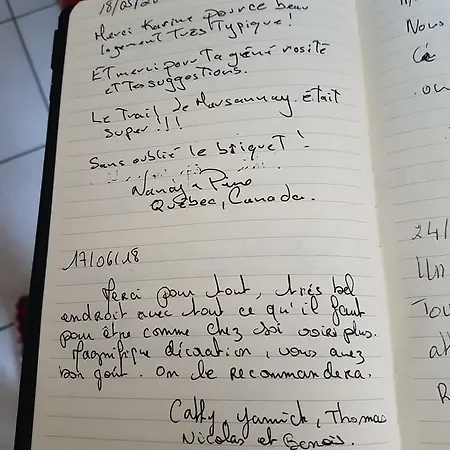 18/05/20
Merci Karine pour ce beau
logement très typique !
Et merci pour ta générosité
et tes suggestions.
Le Trail de Marsannay était
super !!!
Sans oublié le briquet !
Nancy
Québec, Canada.
17/06/18
Merci pour tout, très bel
endroit avec tout ce qu'il faut
pour être comme chez soi voire plus.
Magnifique décoration, vous avez
bon goût. On le recommandera.
Cathy Yannick, Thomas
Nicolas et Benoit.
Nous
Cé
24/
Un
Tou
att
R